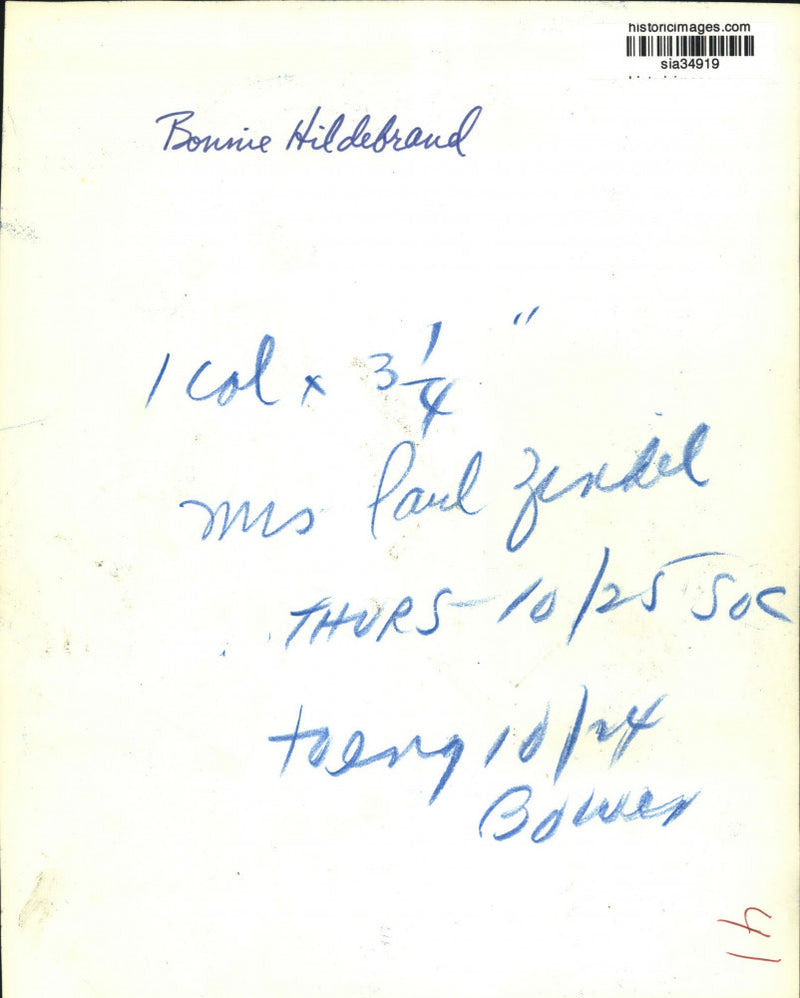 historicimages.com
sia34919
Bonnie Hildebrand
1 col x 3 1/4 "
Mrs Paul Zindel
THURS - 10/25 Soc
to eng 10/24
Bowen
41